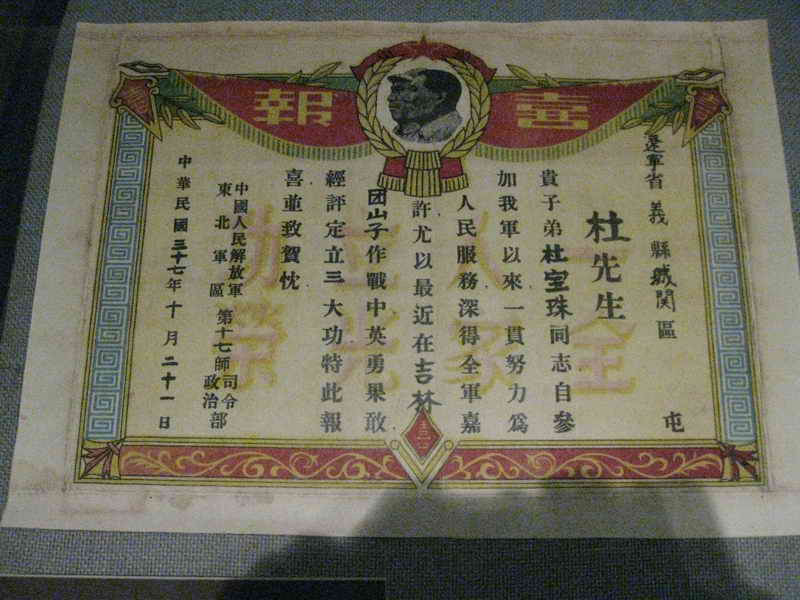 喜報
遼寧省義縣城関區 屯
杜先生
貴子弟杜宝珠同志自參
加我軍以來一貫努力爲
人民服務深得全軍嘉
許.尤以最近在吉林
团山子作戰中英勇果敢.
經評定立三大功特此報
喜.並致賀忱.
中國人民解放軍
東北軍區
第十七師司令
政治部
中華民國三十七年十月二十一日
一人立功
全家光榮